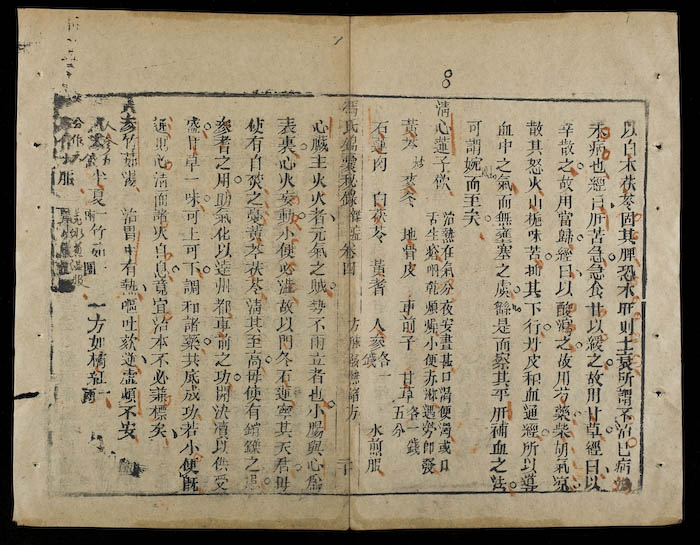 以白术茯苓固其脾恐木旺則土衰所謂不治已病治
未病也經曰肝苦急急食甘以緩之故用甘草經曰以
辛散之故用當歸經曰以酸瀉之故用芍藥柴胡氣寒
散其怒火山梔味苦抑其下行丹皮和血通經所以導
血中之氣而無壅塞之處繇是而察其平肝補血之法
可謂婉而至矣
清心蓮子飲 治熱在氣分夜安晝甚口渴便濁或口
舌生瘡咽乾煩燥小便赤淋遇勞即發
黃芩 麥冬 地骨皮 車前子 甘草各一錢五分
石蓮肉 白茯苓 黃耆 人參各一錢 水煎服
馮氏錦囊秘錄 雜症 卷四 方脉 二十
心臟主火火者元氣之賊勢不兩立者也小腸與心為
表裏心火妄動小便必澁故以門冬石蓮寧其天君毋
使有自焚之憂黃芩茯苓清其至高毋使有銷鑠之患
參耆之用助氣化以達州都車前之功開決瀆以供受
盛甘草一味可上可下調和諸藥共底成功若小便既
通則心清而諸火自息竟宜治本不必兼標矣
人參竹茹湯 治胃口有熱嘔吐欬逆虛煩不安
半夏一 竹茹一團 一方加橘紅一兩
分作 服
8